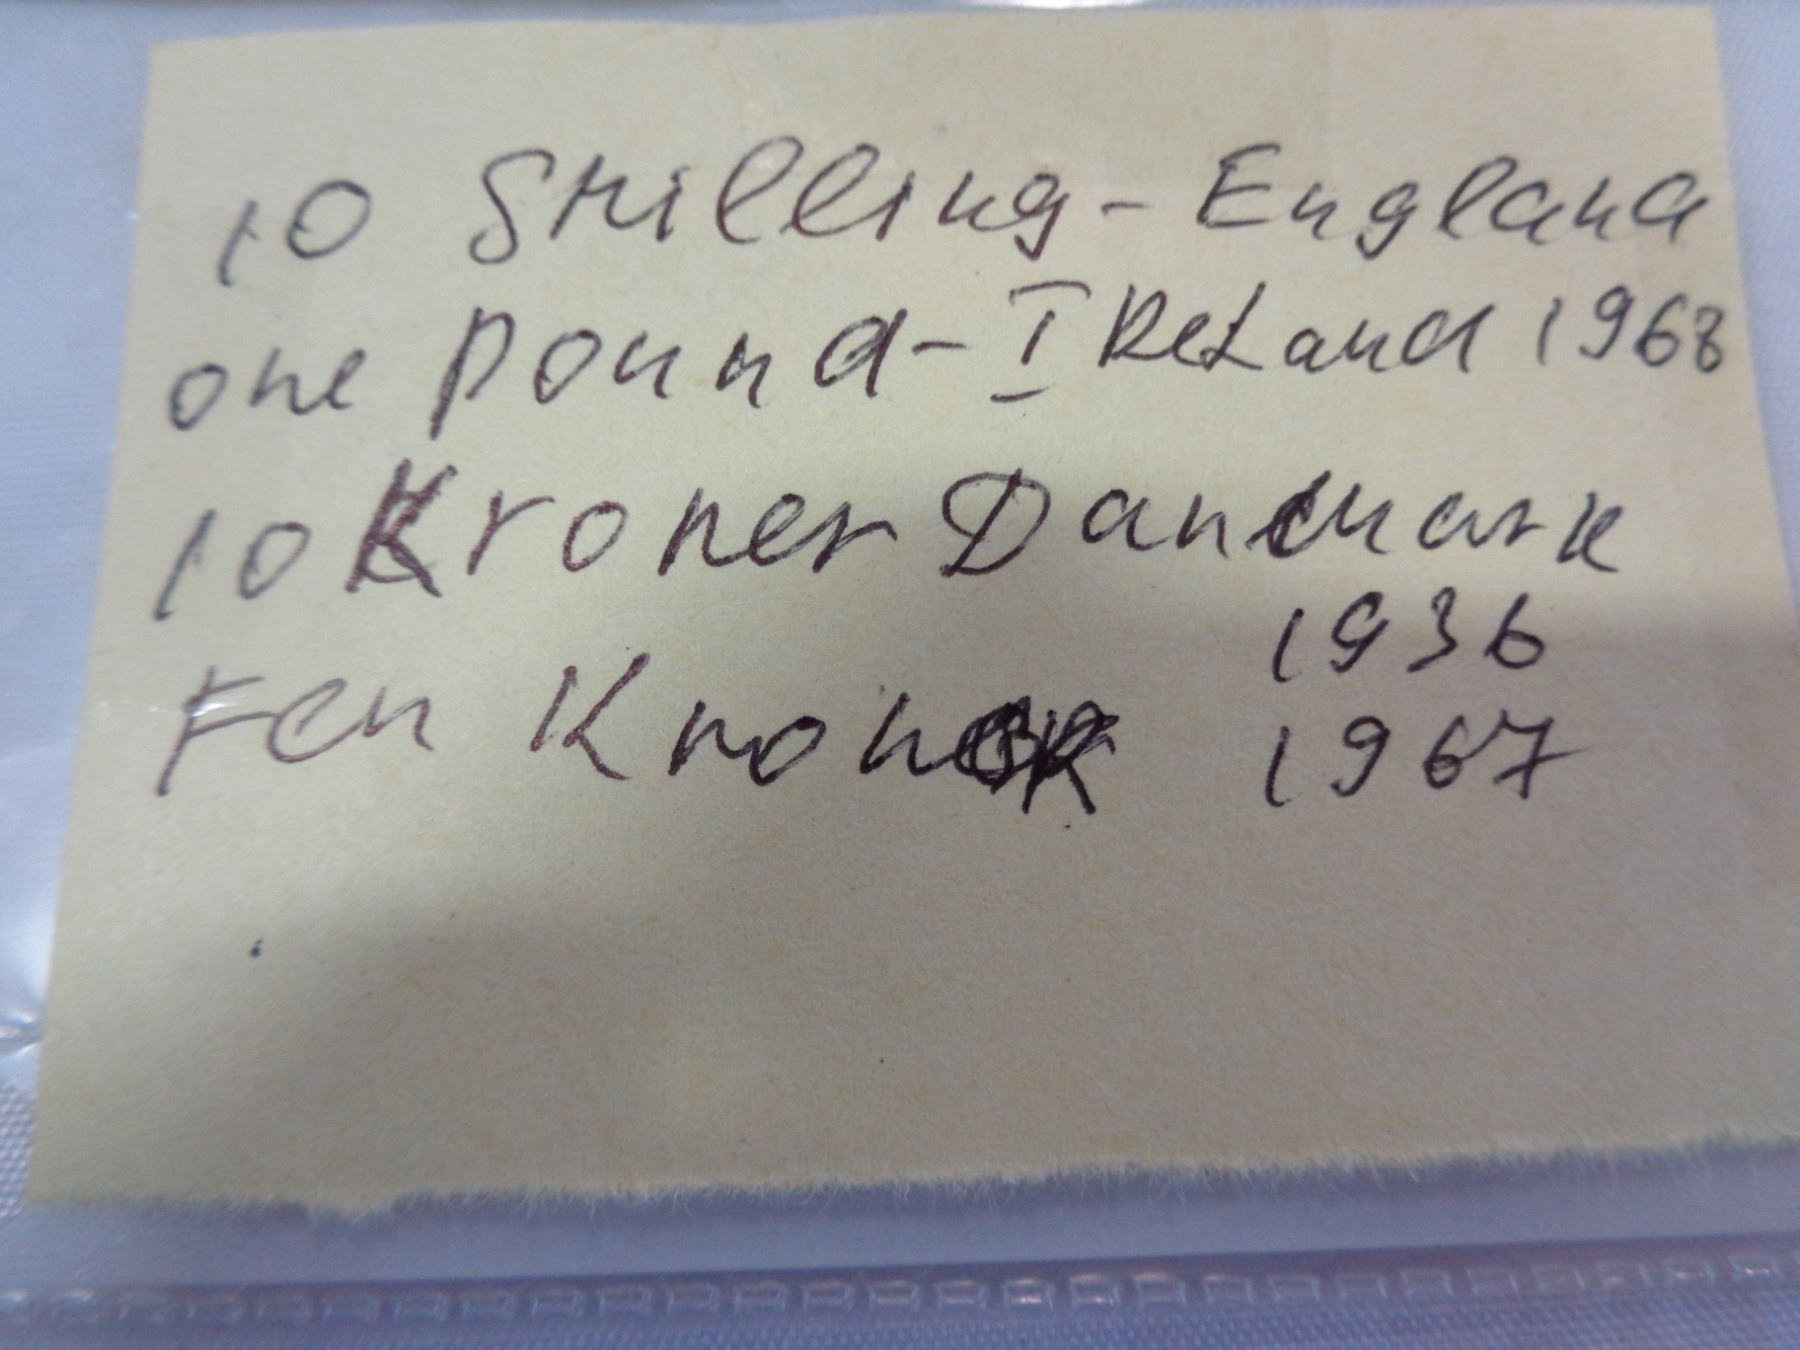 10 Shilling - England
one pound - IReLand 1968
10 Kroner Danmark
1936
Fem 1967